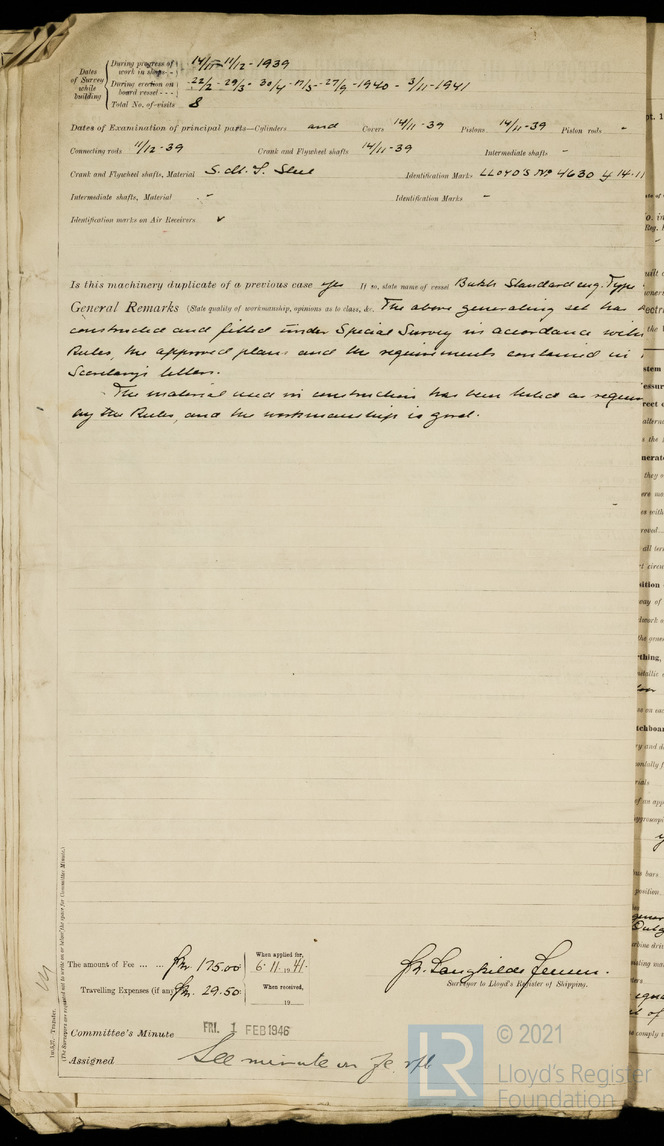 Dates of Survey while building
During progress of work in shops - - 14/11 - 11/12 - 1939
During erection on board vessel - - - 22/2 - 29/3 - 30/4 - 17/5 - 27/9 - 1940 - 3/11 - 1941
Total No. of visits 8
Dates of Examination of principal parts—Cylinders and Covers 14/11-39 Pistons 14/11-39 Piston rods -
Connecting rods 11/12-39 Crank and Flywheel shafts 14/11-39 Intermediate shafts -
Crank and Flywheel shafts, Material S. M. I. Steel Identification Marks LLOYD'S No 4630 14.11
Intermediate shafts, Material - Identification Marks -
Identification marks on Air Receivers
Is this machinery duplicate of a previous case yes If so, state name of vessel Bukh Standard eng. Type
General Remarks (State quality of workmanship, opinions as to class, &c. The above generating set has
constructed and fitted under Special Survey in accordance with
Rules, the approved plans and the requirements contained in
Secretary's letters.
The material used in construction has been tested as
by the Rules, and the workmanship is good.
The amount of Fee ... ... Kr. 175.00 When applied for, 6.11.1941.
Travelling Expenses (if any) Kr. 29.50 When received, 19
Surveyor to Lloyd's Register of Shipping.
Committee's Minute FRI. 1 FEB 1946
Assigned See minute on
(The Surveyors are requested not to write on or below the space for Committee Minute.)
© 2021
Lloyd's Register
Foundation